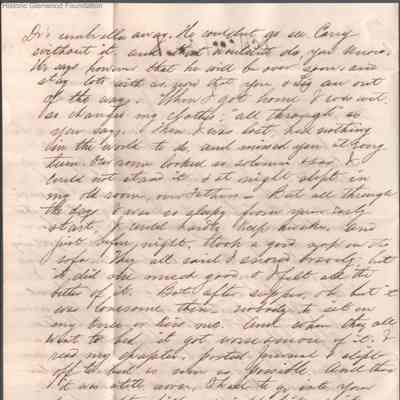 Historic Glenwood Foundation
Dr's umbrella away. He couldn't go see Carry
without it, and that wouldn't do, you know.
He says however that he will be over soon, and
stay lots with us, now that you &  are out
of the way. When I got home I was wet
so changed my clothes "all through, as
you say. Then I was lost, had nothing
in the world to do, and missed you at every
turn. Our room looked so solemn & sad, I
could not stand it & at night slept in
my old room, our Father's — But all through
the day I was so sleepy from your early
start, I could hardly keep awake. And
just before night, I took a good nap on the
sofa. They all said I snored bravely, but
it did me much good, & I felt all the
better of it. But after supper, oh but it
was lonesome then, nobody to set on
my knee or kiss me. And when they all
went to bed, it got worse & more of it. I
read my chapter, posted journal & slept
off to bed as soon as possible. And then
it was still worse. I had to go into your